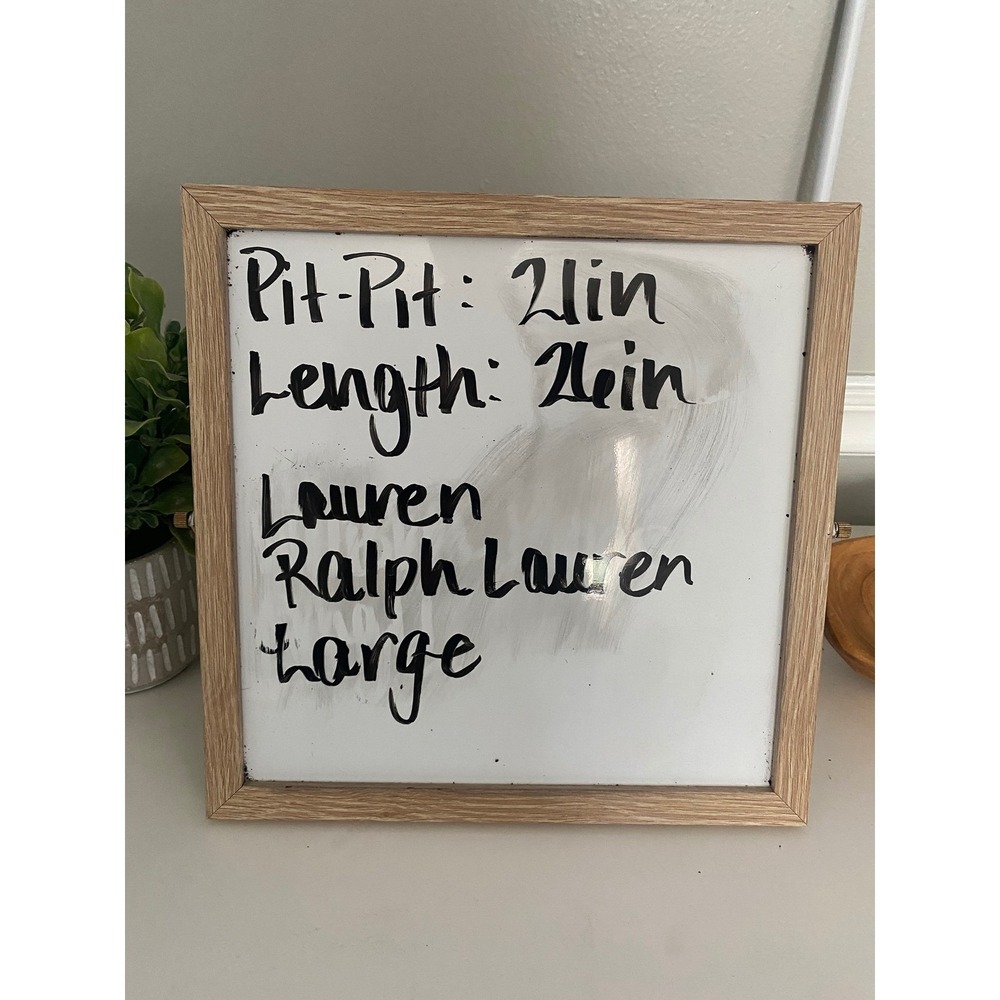 Pit-Pit: 21in
Length: 26in
Lauren
Ralph Lauren
Large